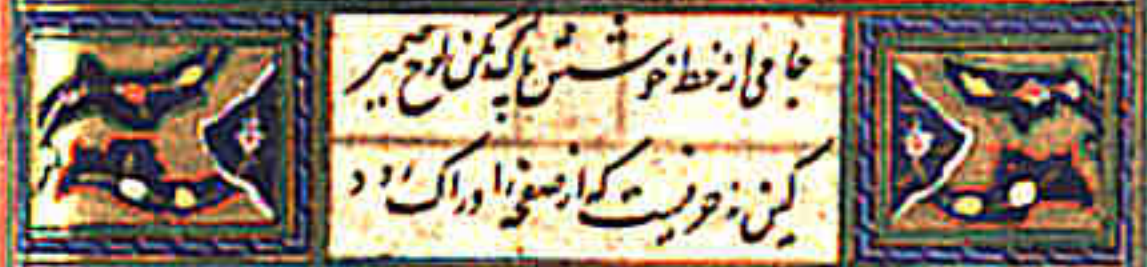 جامی از خط خوشش پاک مکن لوح ضمیر
کین نه حرفیست که از صفحه ادراک رود